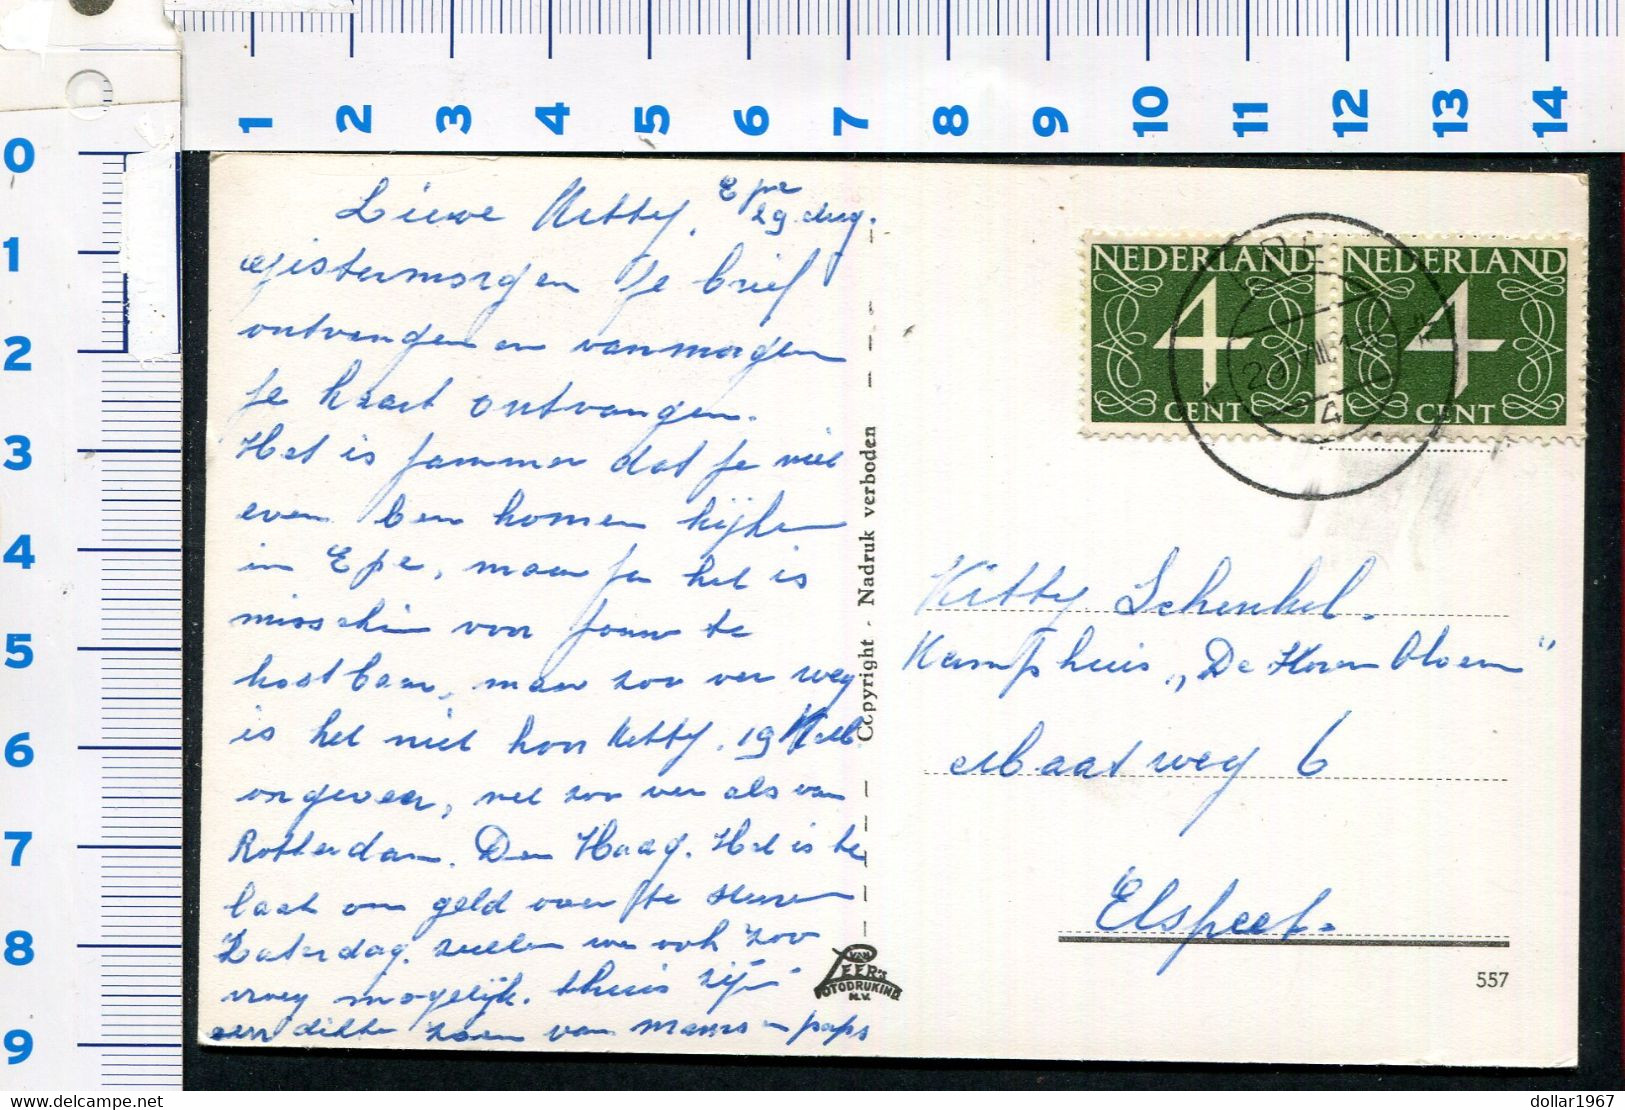 1 2 3 4 5 6 7 8 9 10 11 12 13 14
0
1
2
3
4
5
6
7
8
9
Epe
29 Aug.
Lieve Kitty,
gistermorgen je brief
ontvangen en vanmorgen
je kaart ontvangen.
Het is jammer dat je niet
even ben komen kijken
in Epe, maar ja het is
misschien voor jouw te
kostbaar, maar zoo ver weg
is het niet hoor Kitty. 19 K.M.
ongeveer, net zoo ver als van
Rotterdam. Den Haag. Het is te
laat om geld over te sturen
Zaterdag. zullen we ook zoo
vroeg mogelijk. thuis zijn
een dikke zoen van mams en paps
Copyright - Nadruk verboden
VAN
LEER'S
FOTODRUKIND
N.V.
NEDERLAND
4
CENT
NEDERLAND
4
CENT
EPE
4
Kitty Schenkel.
Kamphuis „De Korenbloem"
Maatweg 6
Elspeet.
557
delcampe.net
dollar1967